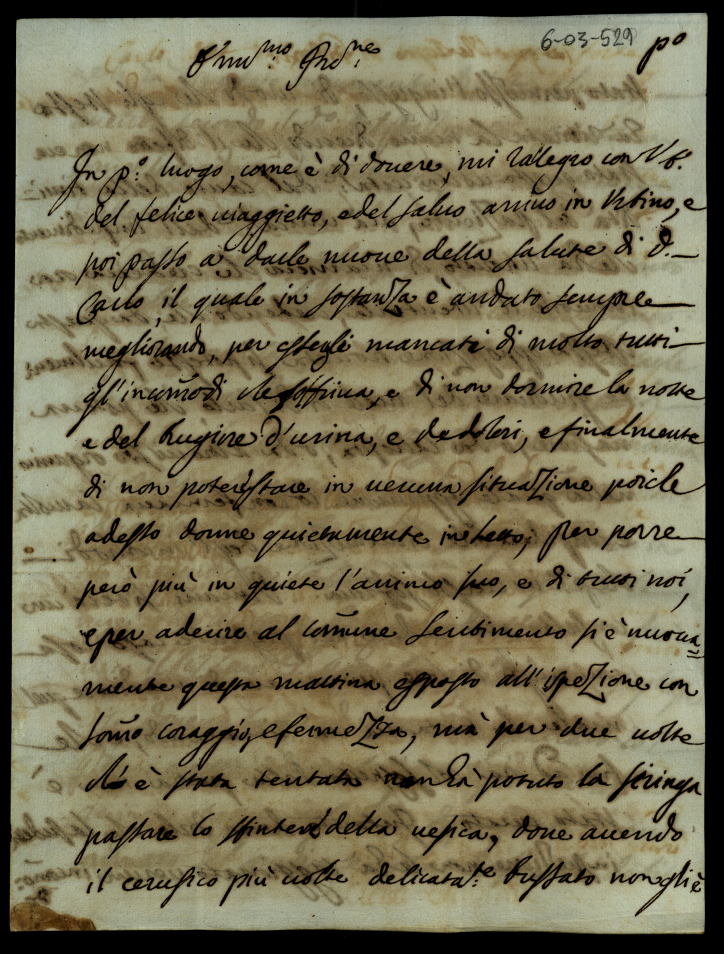 6-03-529
pº
Em̃mo Prõne
In pº. luogo, come è di dovere, mi rallegro con V.E.
del felice viaggietto, e del salvo arrivo in Urbino, e
poi passo à darle nuove della salute di D.
Carlo, il quale in sostanza è andato sempre
megliorando, per essergli mancati di molto tutti
gl'incom̃odi che soffriva, e di non dormire la notte
e del brugiore d'urina, e de dolori, e finalmente
di non poter stare in veruna situazione poiche
adesso dorme quietamente in letto; Per porre
però più in quiete l'animo suo, e di tutti noi,
e per aderire al com̃une sentimento si è nuova=
mente questa mattina esposto all'ispezione con
som̃o coraggio, e fermezza, mà per due volte
ch'è stata tentata non hà potuto la siringa
passare lo sfintere della vesica, dove avendo
il cerusico più volte delicata.te bussato non gli è